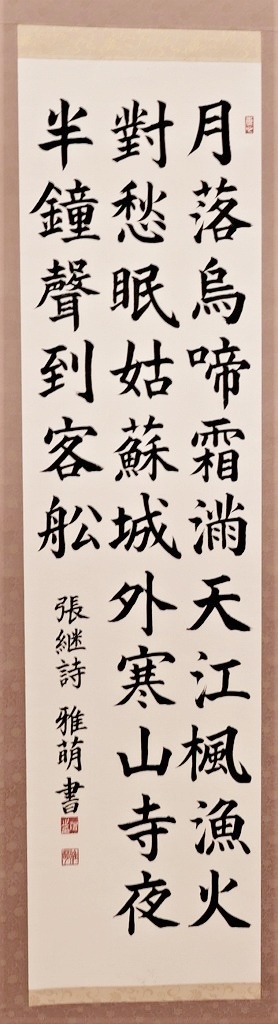 月落烏啼霜満天江楓漁火
對愁眠姑蘇城外寒山寺夜
半鐘聲到客舩
張継詩 雅萌書